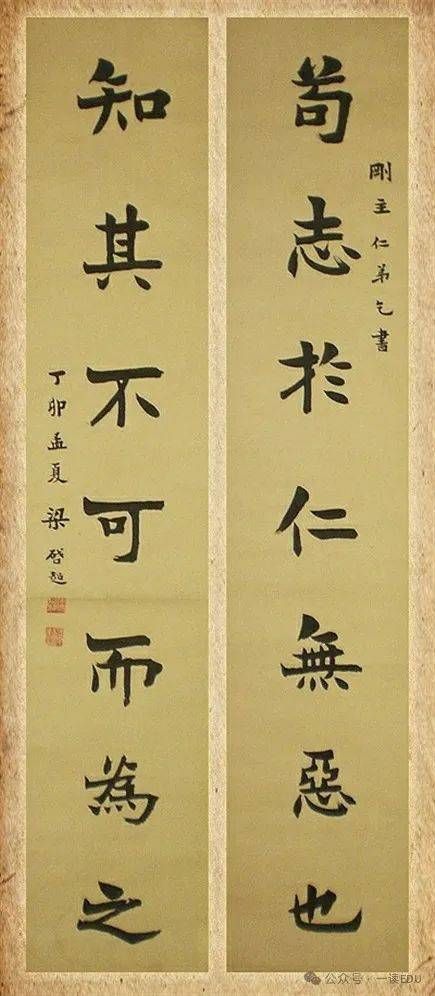 苟志於仁無惡也
剛主仁弟乞書
知其不可而為之
丁卯孟夏 梁啓超
公众号·一读EDU